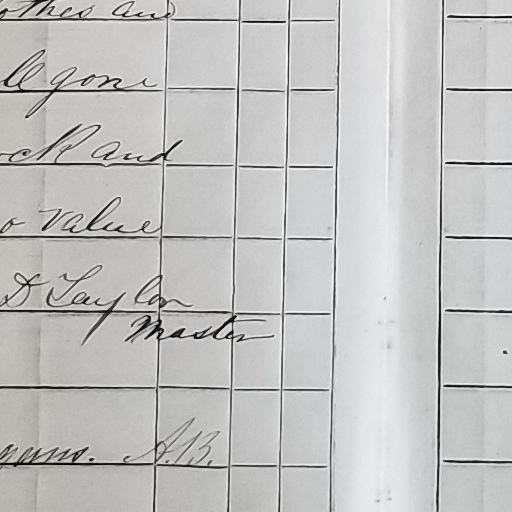 othes and
ll gone
ock and
o value
D Taylor
Master
A.B.